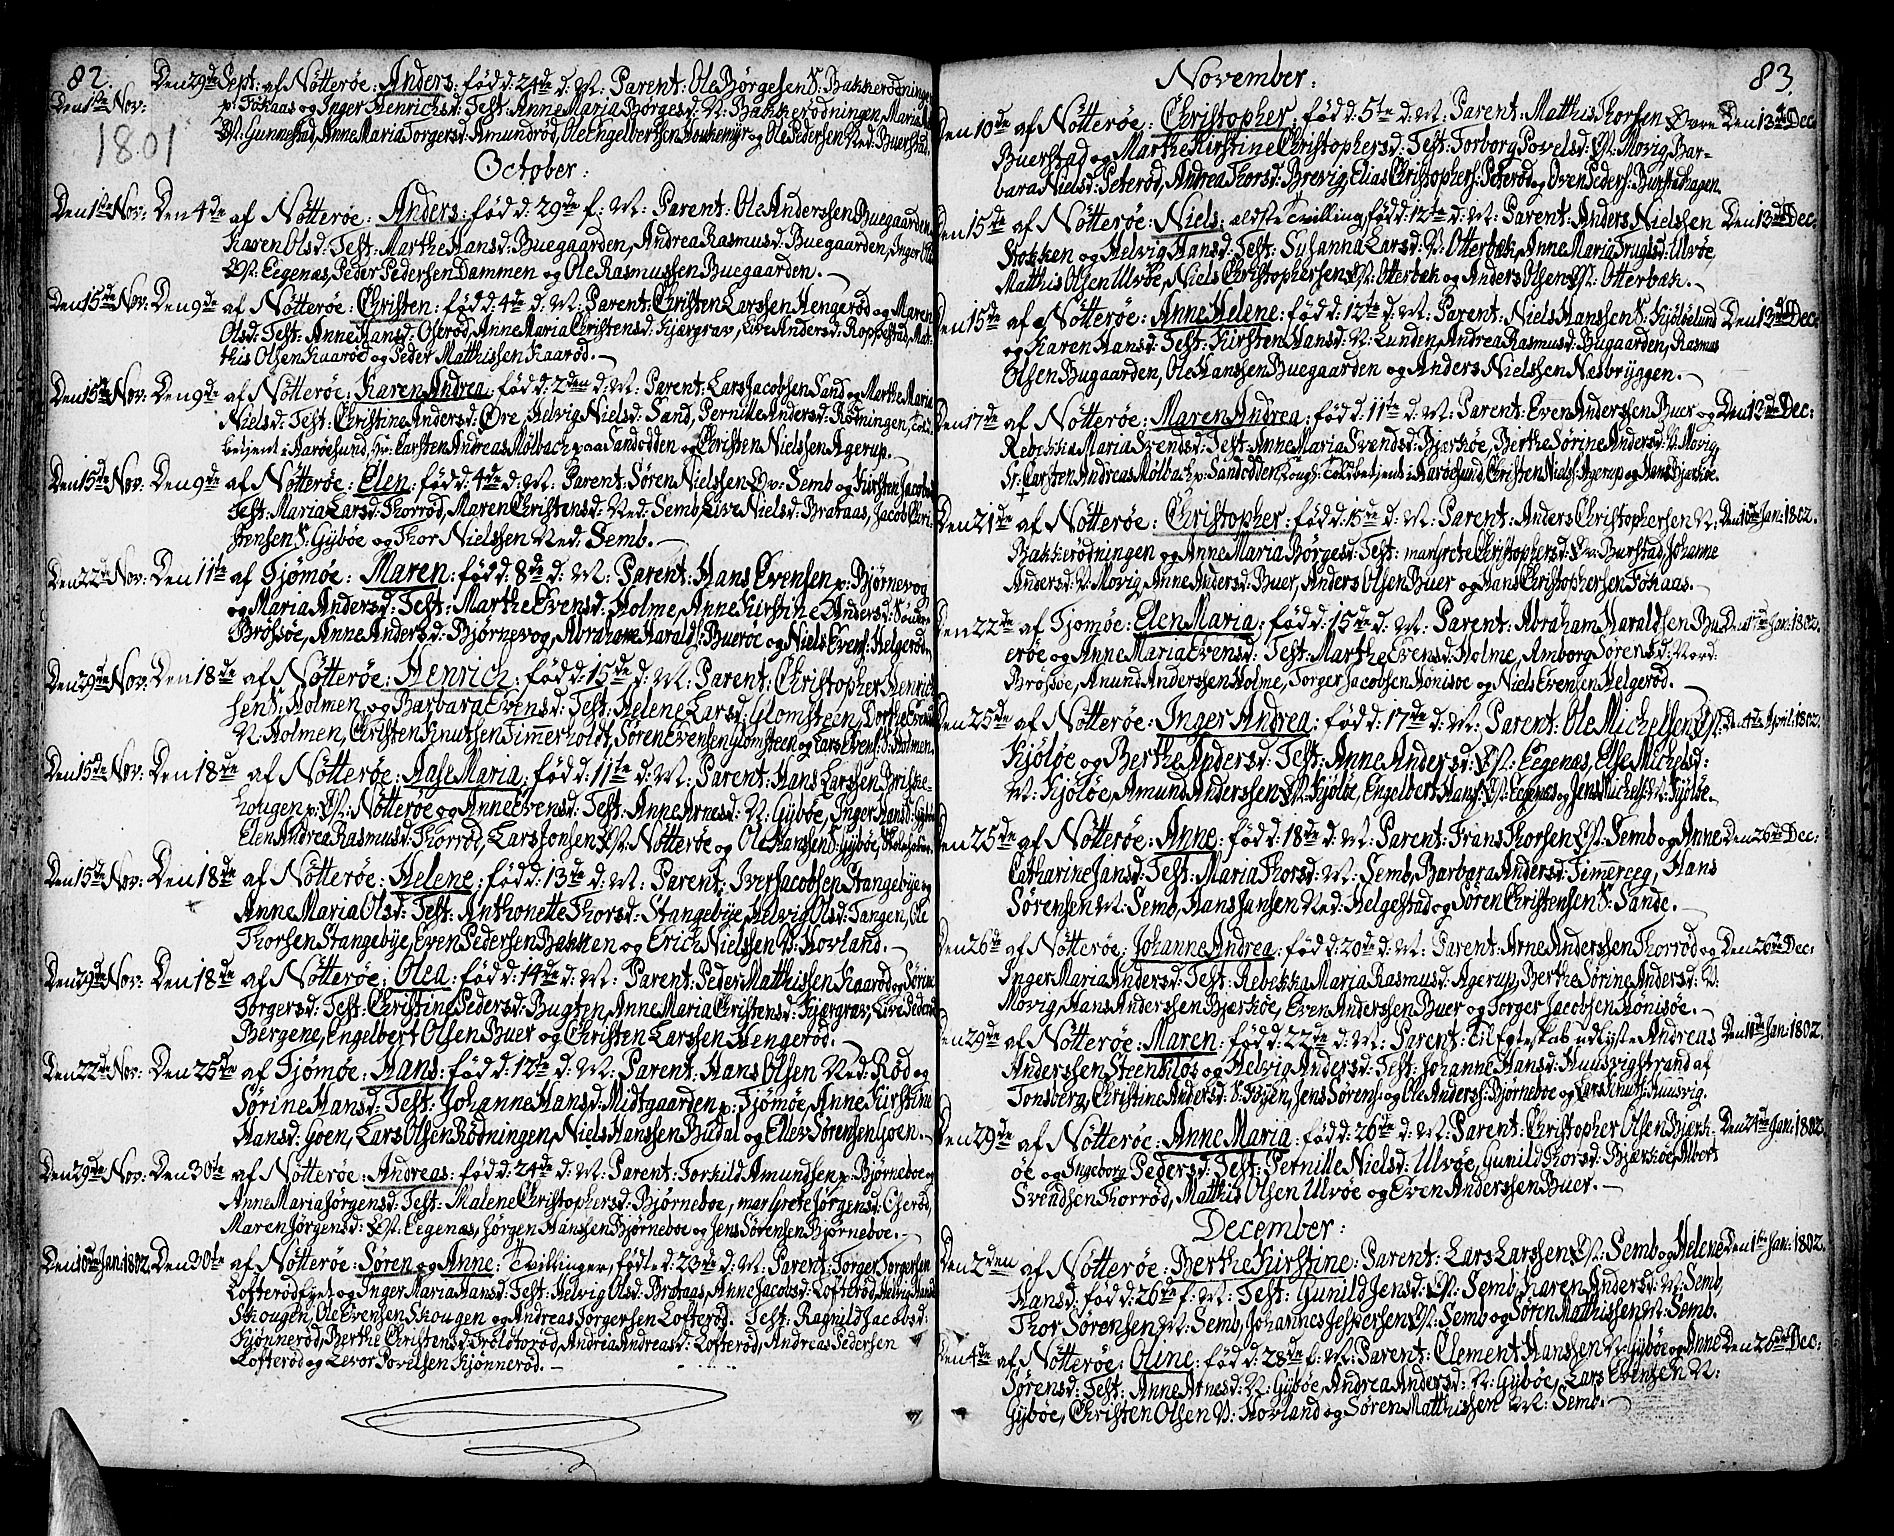 82.
Den 29de Sept: af Nötterøe: Anders: föd d: 24de d: M: Parent: Ole Børgesen S: Bakkerødningen
Den 1ste Nov: p: Fokaas og Inger Henrichsd: Test: Anne Maria Børgesd: N: Bakkerødningen, Maria
1801
Ø: Gunnestad, Anne Maria Torgersd: Amundrød, Ole Engelbertsen og Ole Pedersen Ned: Buerstad.
October:
Den 1ste Nov: Den 4de af Nötterøe: Anders: föd d: 29de f: M: Parent: Ole Anderssen Buegaarden
Karen Olsd: Test: Marthe Hansd: Buegaarden, Andrea Rasmusd: Buegaarden, Inger Ols
Ø: Eegenæs, Peder Pedersen Dammen og Ole Rasmussen Buegaarden.
Den 15de Nov: Den 9de af Nötterøe: Christen: föd d: 4de d: M: Parent: Christen Larssen Hengerød og Maren
Olsd: Test: Anne Hansd: Oserød, Anne Maria Christensd: Kjærgrav, Live Andersd: Roppestad, Mat-
this Olsen Kaarød og Peder Matthissen Kaarød.
Den 15de Nov: Den 9de af Nötterøe: Karen Andrea: föd d: 2den d: M: Parent: Lars Jacobsen Sand og Marthe Maria
Nielsd: Test: Christine Andersd: Øre, Helvig Nielsd: Sand, Pernille Andersd: Rødningen, Told-
betjent i Aarøesund, Hr: Carsten Andreas Mølbach paa Sandodden og Christen Nielssen Agerup.
Den 15de Nov: Den 9de af Nötterøe: Elen: föd d: 4de d: M: Parent: Søren Nielssen Øv: Semb og Kirsten Jacobsd
Test: Maria Larsd: Thorrød, Maren Christensd: Ned: Semb, Live Nielsd: Brataas, Jacob Chri-
stensen S: Gjybøe og Thor Nielssen Ned: Semb.
Den 22de Nov: Den 11te af Tjømøe: Maren: föd d: 8de d: M: Parent: Hans Evensen p: Bjørnevog
og Maria Andersd: Test: Marthe Evensd: Holme, Anne Kirstine Andersd: Sønder
Brøssøe, Anne Andersd: Bjørnevog, Abraham Harald: Buerøe og Niels Evens: Helgerød.
Den 29de Nov: Den 18de af Nötterøe: Henrich: föd d: 15de d: M: Parent: Christopher Henrich-
sen S: Holmen og Barbara Evensd: Test: Helene Larsd: Glomsteen, Dorthe Evensd
N: Holmen, Christen Knutsen Timmerholdt, Søren Evensen Glomsteen og Lars Evens: S: Holmen.
Den 15de Nov: Den 18de af Nötterøe: Aase Maria: föd d: 11te d: M: Parent: Hans Larssen Briske-
hougen p: Ø: Nötterøe og Anne Evensd: Test: Anne Arnesd: N: Gybøe, Inger Hansd:
Elen Andrea Rasmusd: Thorrød, Lars Jonsen Ø: Nötterøe og Ole Hanssen S: Gybøe,
Den 15de Nov: Den 18de af Nötterøe: Helene: föd d: 13de d: M: Parent: Iver Jacobsen Stangebye og
Anne Maria Olsd: Test: Anthonette Thorsd: Stangebye, Helvig Olsd: Tangen, Ole
Thorsen Stangebye, Even Pedersen Bakken og Erich Nielssen N: Hovland.
Den 29de Nov: Den 18de af Nötterøe: Olea: föd d: 14de d: M: Parent: Peder Matthissen Kaarød og Sørine
Torgersd: Test: Christine Pedersd: Bugten, Anne Maria Christensd: Kjærgrav, Live Pedersd
Bergene, Engelbert Olsen Buer og Christen Larssen Hengerød.
Den 22de Nov: Den 25de af Tjømøe: Hans: föd d: 12te d: M: Parent: Hans Olsen Ned: Rød og
Sørine Hansd: Test: Johanne Hansd: Midtgaarden p: Tjømøe, Anne Kirstine
Hansd: Goen, Lars Olsen Rødningen, Niels Hanssen Budal og Ellev Sørensen Goen.
Den 29de Nov: Den 30te af Nötterøe: Andreas: föd d: 24de d: M: Parent: Torkild Amundsen p: Bjørneboe og
Anne Maria Jørgensd: Test: Malene Christophersd: Bjørneboe, Margrete Jørgensd: Oserød,
Maren Jørgensd: Ø: Eegenæs, Jørgen Hanssen Bjørneboe og Jens Sørensen Bjørneboe.
Den 10de Jan: 1802. Den 30te af Nötterøe: Søren og Anne: Tvillinger, födte d: 23de d: M: Parent: Torger Torgersen
Lofterød og Inger Maria Hansd: Test: Helvig Olsd: Brataas, Anne Jacobsd: Lofterød, Helvig Hansd
Skougen, Ole Evensen Skougen og Andreas Torgersen Lofterød. Test: Ragnild Jacobsd:
Kjønnerød, Berthe Christensd: Troldtorød, Andrea Andreasd: Lofterød, Andreas Pedersen
Lofterød og Levor Povelsen Kjønnerød.
83.
November:
Den 10de af Nötterøe: Christopher: föd d: 5te d: M: Parent: Matthis Thorsen Øvre Den 13de Dec:
Buerstad og Marthe Kirstine Christophersd: Test: Torborg Povelsd: Ø: Movig, Bar-
bara Nielsd: Peterød, Andrea Thorsd: Brevig, Elias Christophers: Peterød og Oven Peders: Burstadhagen.
Den 15de af Nötterøe: Niels: ældste Tvilling, föd d: 12te d: M: Parent: Anders Nielssen Den 13de Dec:
Stokken og Helvig Hansd: Test: Susanna Larsd: N: Otterbæk, Anne Maria Trugsd: Ulvøe,
Matthis Olsen Ulvøe, Niels Christophersen Ø: Otterbæk og Anders Olsen Ø: Otterbæk.
Den 15de af Nötterøe: Anne Helene: föd d: 12te d: M: Parent: Niels Hanssen S: Kjøløelund Den 13de Dec:
og Karen Hansd: Test: Kirsten Hansd: N: Lunden, Andrea Rasmusd: Bugaarden, Rasmus
Olsen Bugaarden, Ole Hanssen Buegaarden og Anders Nielssen Næsbryggen.
Den 17de af Nötterøe: Maren Andrea: föd d: 11te d: M: Parent: Even Anderssen Buer og Den 12de Dec:
Rebekke Maria Svendsd: Test: Anne Maria Svendsd: Bjærkøe, Berthe Sørine Andersd: N: Movig
Sr: Carsten Andreas Mølbach p: Sandodden, Kongl: Toldbetjent i Aarøesund, Christen Niels: Agerup og Hans Bjærkøe.
Den 21de af Nötterøe: Christopher: föd d: 15de d: M: Parent: Anders Christophersen N: Den 10de Jan: 1802.
Bakkerødningen og Anne Maria Børgesd: Test: Margrete Christophersd: Øv: Burstad, Johanne
Andersd: N: Movig, Anne Andersd: Buer, Anders Olsen Buer og Hans Christophersen Fokaas.
Den 22de af Tjømøe: Elen Maria: föd d: 15de d: M: Parent: Abraham Haraldsen Bu- Den 17de Jan: 1802.
erøe og Anne Maria Evensd: Test: Marthe Evensd: Holme, Amborg Sørensd: Nord:
Brøssøe, Anund Anderssen Holme, Torger Jacobsen Hønisøe og Niels Evensen Helgerød.
Den 25de af Nötterøe: Inger Andrea: föd d: 17de d: M: Parent: Ole Michelssen Ø: Den 4de April: 1802.
Kjøløe og Berthe Andersd: Test: Anne Andersd: Ø: Eegenæs, Else Michelsd:
M: Kjøløe, Amund Anderssen Ø: Kjøløe, Engelbert Hans: Ø: Eegenæs og Jens Michels: M: Kjøløe.
Den 25de af Nötterøe: Anne: föd d: 18de d: M: Parent: Frans Thorsen Ø: Semb og Anne Den 26de Dec:
Catharine Jansd: Test: Maria Thorsd: M: Semb, Barbara Andersd: Timereeg, Hans
Sørensen M: Semb, Hans Jansen Ned: Helgestad og Søren Christensen S: Sande.
Den 26de af Nötterøe: Johanne Andrea: föd d: 20de d: M: Parent: Arne Anderssen Thorrød og Den 26de Dec:
Inger Maria Andersd: Test: Rebekka Maria Rasmusd: Agerup, Berthe Sørine Andersd: N:
Movig, Hans Anderssen Bjerkøe, Even Anderssen Buer og Torger Jacobsen Hønisøe.
Den 29de af Nötterøe: Maren: föd d: 22de d: M: Parent: til Egteskab udlyste Andreas Den 10de Jan: 1802.
Anderssen Steenklos og Helvig Andersd: Test: Johanne Hansd: Huusvigstrand af
Tønsberg, Christine Andersd: S: Føjen, Jens Sørens: og Ole Anderss: Bjørneboe og Lars Knuts: Huusvig.
Den 29de af Nötterøe: Anne Maria: föd d: 26de d: M: Parent: Christopher Olsen Bjerk- Den 24de Jan: 1802.
øe og Ingeborg Pedersd: Test: Pernille Nielsd: Ulvøe, Gunild Thorsd: Bjærkøe, Albert
Svendsen Thorrød, Matthis Olsen Ulvøe og Even Anderssen Buer.
December:
Den 2den af Nötterøe: Berthe Kirstine: Parent: Lars Larssen Ø: Semb og Helene Den 1ste Jan: 1802.
Hansd: föd d: 26de f: M: Test: Gunild Jensd: Ø: Semb, Karen Andersd: M: Semb,
Thor Sørensen M: Semb, Johannes Jespersen Ø: Semb og Søren Matthissen M: Semb.
Den 4de af Nötterøe: Oline: föd d: 28de f: M: Parent: Clement Hanssen N: Gybøe og Anne Den 26de Dec:
Sørensd: Test: Anne Arnesd: N: Gybøe, Andrea Andersd: N: Gybøe, Lars Evensen N:
Gybøe, Christen Olsen N: Hovland og Søren Matthissen M: Semb.